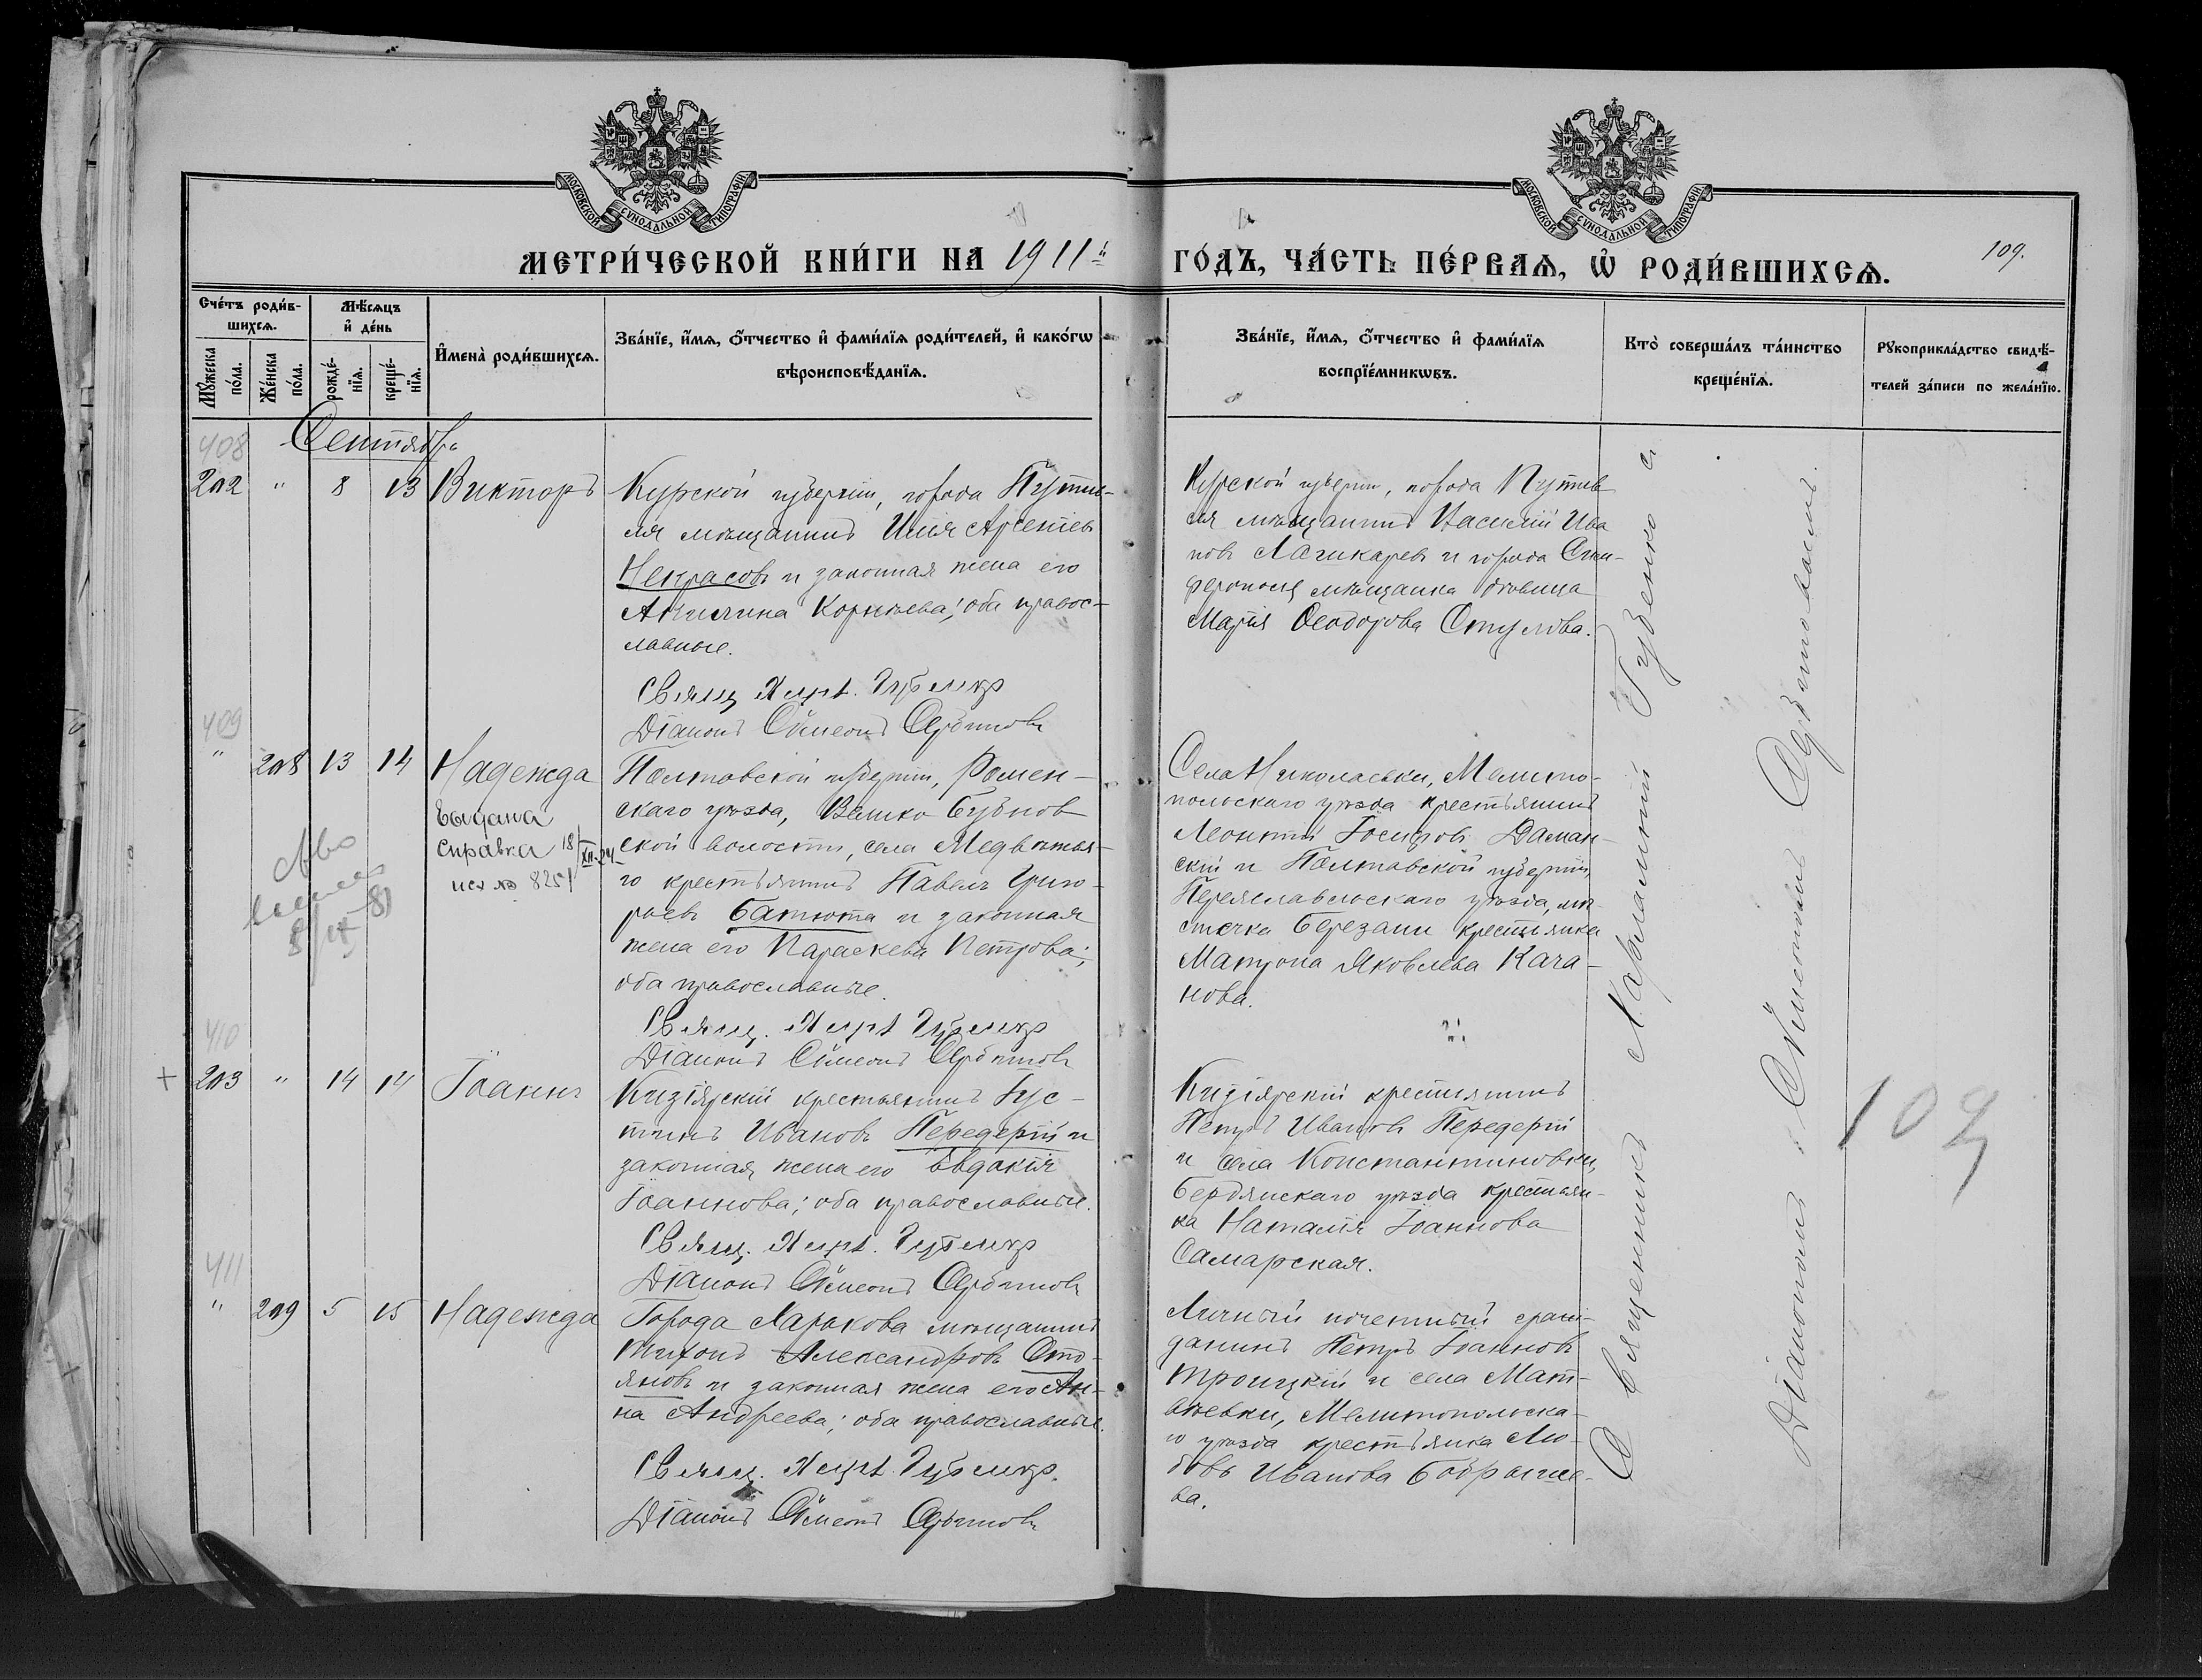 МОСКОВСКОЙ СѴНОДАЛЬНОЙ ТИПОГРАФІИ
МОСКОВСКОЙ СѴНОДАЛЬНОЙ ТИПОГРАФІИ
МЕТРИ́ЧЕСКОЙ КНИ́ГИ НА 1911й
ГО́ДЪ, ЧА́СТЬ ПЕ́РВАѦ, Ѽ РОДИ́ВШИХСѦ.
109.
Сче́тъ роди́в-
шихсѧ.
Мѣ́сѧцъ
и҆ де́нь
Мꙋ́жеска
по́ла.
Же́нска
по́ла.
рожде́-
нїѧ.
креще́-
нїѧ.
И҆мена̀ роди́вшихсѧ.
Зва́нїе, и҆́мѧ, ѻ҆́тчество и҆ фами́лїѧ роди́телей, и҆ како́гѡ
вѣроисповѣ́данїѧ.
Зва́нїе, и҆́мѧ, ѻ҆́тчество и҆ фами́лїѧ
воспрїе́мникѡвъ.
Кто̀ соверша́лъ та́инство
креще́нїѧ.
Рꙋкоприкла́дство свидѣ́-
телей за́писи по жела́нїю.
Сентябрь
408
202 " 8 13 Викторъ
Курской губерніи, города Путив-
ля мѣщанинъ Илія Арсеніевъ
Некрасовъ и законная жена его
Акилина Корнѣева; оба правос-
лавные.
Свящ. Харл. Губенко
Діаконъ Сѵмеонъ
Курской губерніи, города Путив
ля мѣщанинъ Василій Ива
новъ и города Сим-
ферополя мѣщанка дѣвица
Марія Ѳеодорова
409
" 208 13 14 Надежда
Выдана
справка 18/XII-24
исх № 8251
Полтавской губерніи, Ромен-
скаго уѣзда, Велико Бубнов
ской волости, села Медвѣжья-
го крестьянинъ Павелъ Григо-
рьевъ Батюта и законная
жена его Параскева Петрова;
оба православные.
Свящ. Харл Губенко
Діаконъ Сѵмеонъ
Села Николаевки, Мелито-
польскаго уѣзда крестьянинъ
Леонтій Іосифовъ Даман-
скій и Полтавской губерніи,
Переяславльскаго уѣзда, мѣ-
стечка Березани крестьянка
Матрона Яковлева Кача-
нова.
410
+ 203 " 14 14 Іоаннъ
Кизіярскій крестьянинъ Іус-
тинъ Ивановъ Передерій и
законная жена его Евдокія
Іоаннова; оба православные.
Свящ. Харл. Губенко
Діаконъ Сѵмеонъ
Кизіярскій крестьянинъ
Петръ Ивановъ Передерій
и села Константиновки,
Бердянскаго уѣзда крестьян-
ка Наталія Іоаннова
Самарская.
411
" 209 5 15 Надежда
Города Харькова мѣщанинъ
Тихонъ Александровъ Сто-
яновъ и законная жена его Ан-
на Андреева; оба православные.
Свящ. Харл. Губенко.
Діаконъ Сѵмеонъ
Личный почетный граж-
данинъ Петръ Іоанновъ
Троицкій и села Мат-
вѣевки, Мелитопольска-
го уѣзда крестьянка Лю-
бовь Иванова Бобрыше-
ва.
Священникъ Харлампій Губенко съ
Діакономъ Сѵмеономъ
109